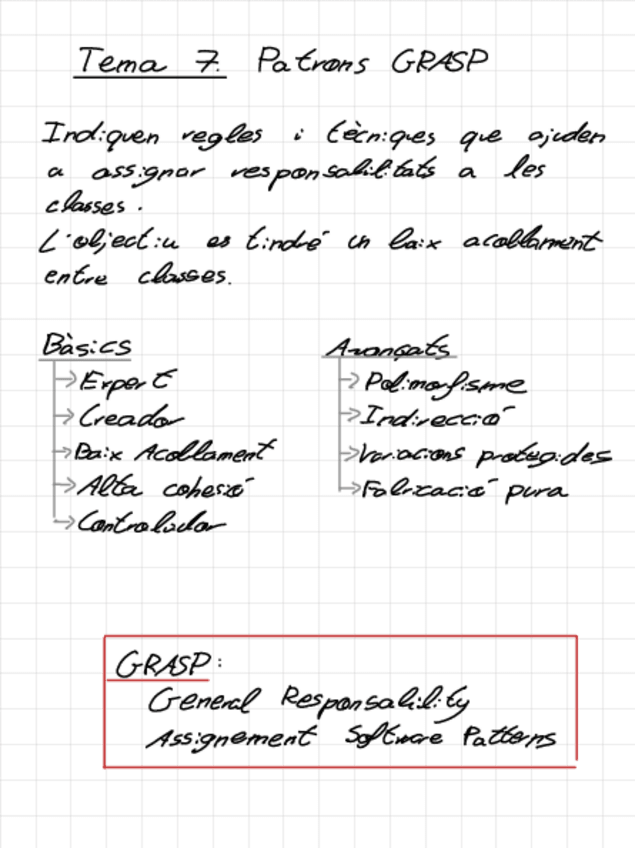 Tema 7. Patrons GRASP
Indiquen regles i tècniques que ajuden
a assignar responsabilitats a les
classes.
L'objectiu es tindré un baix acoblament
entre classes.
Bàsics
Expert
Creador
Baix Acoblament
Alta cohesió
Controlador
Avançats
Polimorfisme
Indirecció
Variacions protegides
Fabricació pura
GRASP:
General Responsability
Assignement Software Patterns